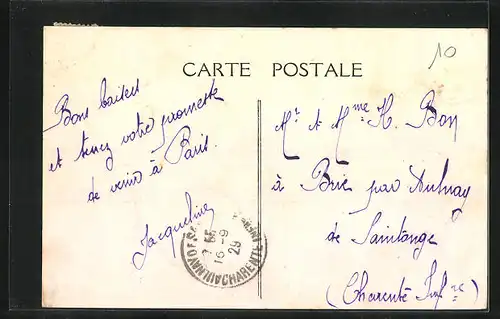 10
CARTE POSTALE
Bons baisers
et tenez votre promesse
de venir à Paris.
Jacqueline
Mr et Mme H. Bon
à Brie par Aulnay
de Saintonge
(Charente Infre)
16-9
29
AULNAY DE CHARENTE INF